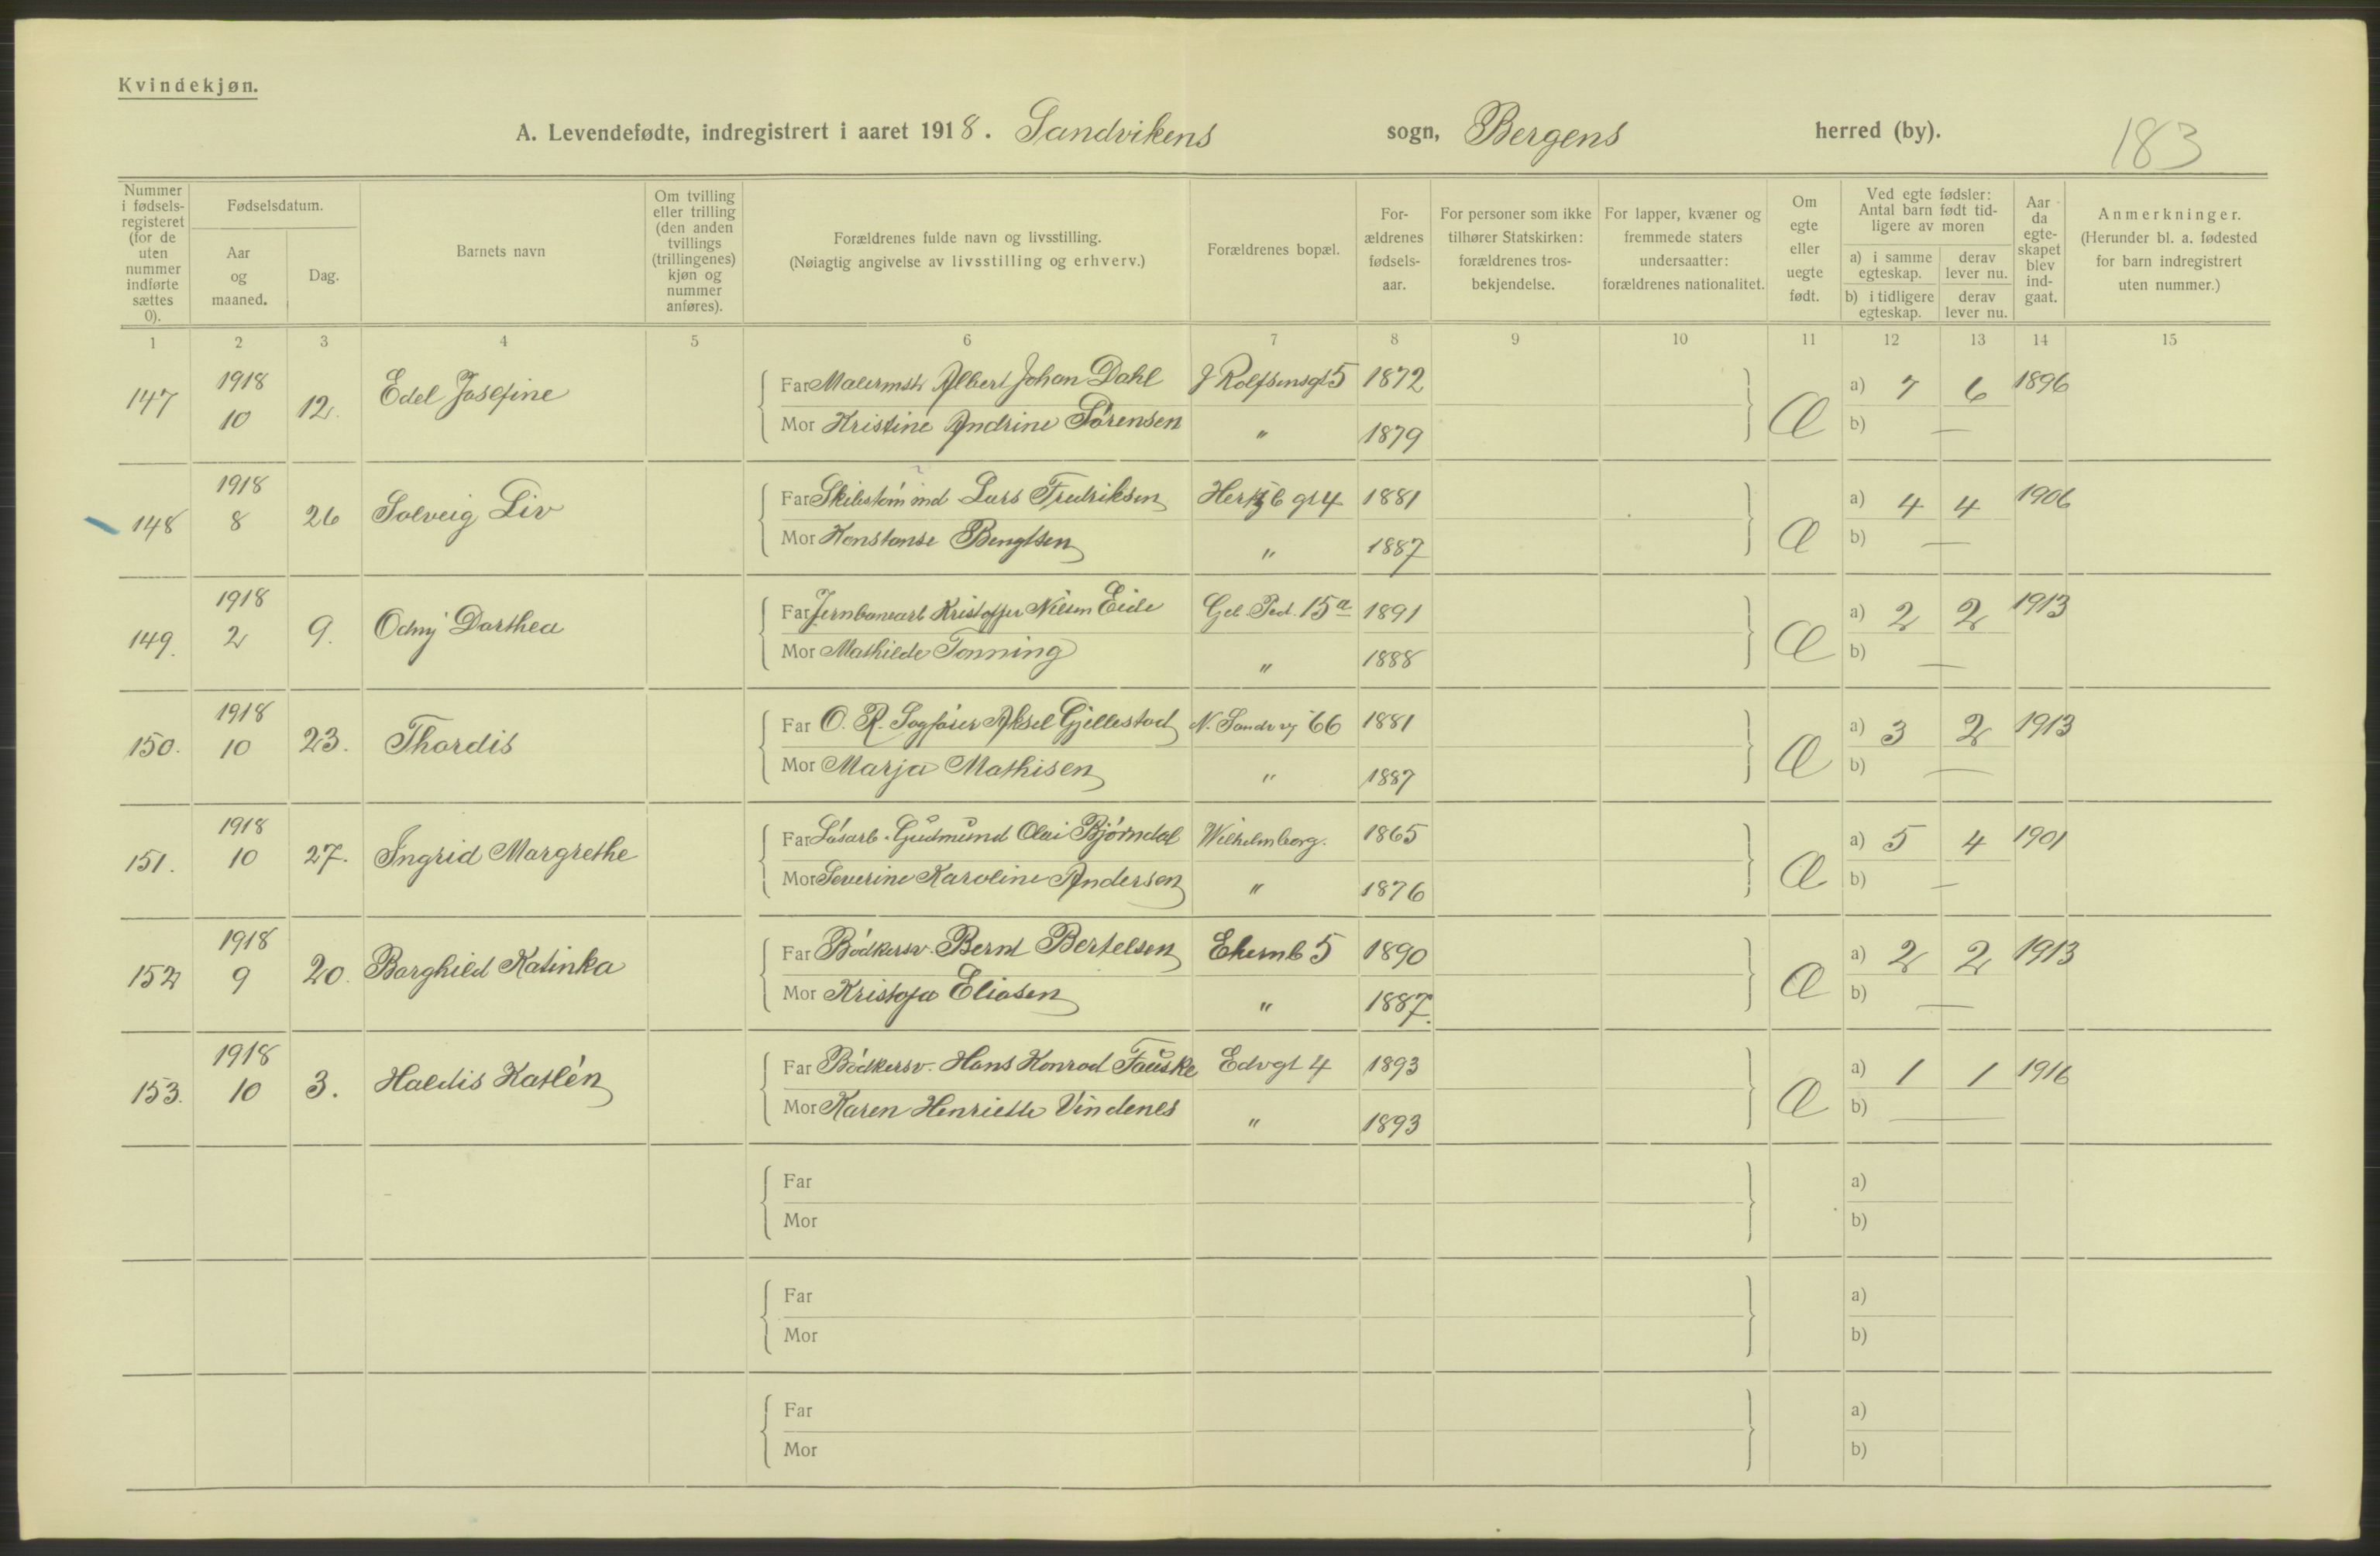 Kvindekjøn.
A. Levendefødte, indregistrert i aaret 1918. Sandvikens sogn, Bergens herred (by). 183
Nummer i fødsels-registeret (for de uten nummer indførte sættes 0).
Fødselsdatum.
Aar og maaned.
Dag.
Barnets navn
Om tvilling eller trilling (den anden tvillings (trillingenes) kjøn og nummer anføres).
Forældrenes fulde navn og livsstilling.
(Nøiagtig angivelse av livsstilling og erhverv.)
Forældrenes bopæl.
For-ældrenes fødsels-aar.
For personer som ikke tilhører Statskirken: forældrenes tros-bekjendelse.
For lapper, kvæner og fremmede staters undersaatter: forældrenes nationalitet.
Om egte eller uegte født.
Ved egte fødsler: Antal barn født tid-ligere av moren
a) i samme egteskap. derav lever nu.
b) i tidligere egteskap. derav lever nu.
Aar da egte-skapet blev ind-gaat.
Anmerkninger.
(Herunder bl. a. fødested for barn indregistrert uten nummer.)
1 2 3 4 5 6 7 8 9 10 11 12 13 14 15
147 1918 10 12. Edel Josefine Far Malermstr Albert Johan Dahl J Rolfsensgt 5 1872 a) 7 6 1896
Mor Kristine Andrine Sørensen " 1879 b) —
148 1918 8 26 Solveig Liv Far Skibstømmd Lars Fredriksen 1881 a) 4 4 1906
Mor Konstanse Bengtsen " 1887 b) —
149. 1918 2 9. Odny Dorthea Far Jernbanearb Kristoffer Nilsen Eide Gel Ped. 15a 1891 a) 2 2 1913
Mor Mathilde Tonning " 1888 b) —
150. 1918 10 23. Thordis Far O. R. Sagfører Aksel Gjellestad N. Sandv vj 66 1881 a) 3 2 1913
Mor Marja Mathisen " 1887 b) —
151. 1918 10 27. Ingrid Margrethe Far Løsarb. Gudmund Olai Bjørndal Wilhelmborg. 1865 a) 5 4 1901
Mor Severine Karoline Andersen " 1876 b) —
152 1918 9 20. Borghild Katinka Far Bødkersv. Bernt Bertelsen 5 1890 a) 2 2 1913
Mor Kristofa Eliasen " 1887. b) —
153. 1918 10 3. Haldis Katlén Far Bødkersv. Hans Konrad Fauske Edvgt 4 1893 a) 1 1 1916
Mor Karen Henriette Vindenes " 1893 b) —
Far a)
Mor b)
Far a)
Mor b)
Far a)
Mor b)